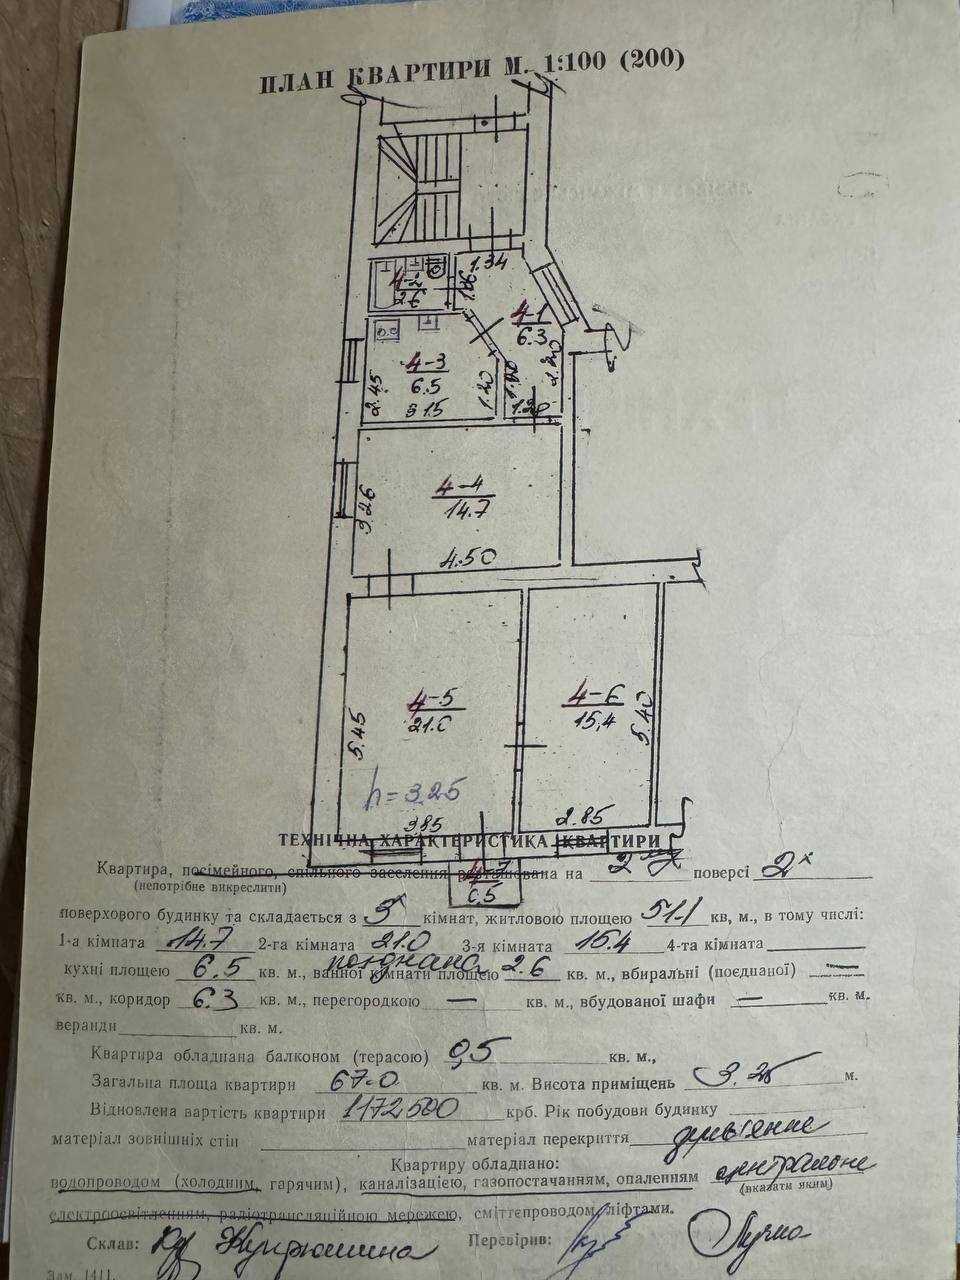 ПЛАН КВАРТИРИ М. 1:100 (200)
1.34
4-2
2.6
1.06
4-1
6.3
4-3
6.5
2.45
1.20
3.15
2.20
1.20
4-4
14.7
3.26
4.50
4-5
21.0
5.45
4-6
15,4
5.40
h = 3.25
3.85
2.85
ТЕХНІЧНА ХАРАКТЕРИСТИКА КВАРТИРИ
4-7
0,5
Квартира, посімейного, спільного заселення розташована на 2 ху поверсі 2х
(непотрібне викреслити)
поверхового будинку та складається з 3х кімнат, житловою площею 51.1 кв, м., в тому числі:
1-а кімната 14.7 2-га кімната 21.0 3-я кімната 15.4 4-та кімната
поєднана
кухні площею 6.5 кв. м., ванної кімнати площею 2.6 кв. м., вбиральні (поєднаної) —
кв. м., коридор 6.3 кв. м., перегородкою — кв. м., вбудованої шафи — кв. м.
веранди кв. м.
Квартира обладнана балконом (терасою) 0,5 кв. м.,
Загальна площа квартири 67.0 кв. м. Висота приміщень 3.25 м.
Відновлена вартість квартири 1172500 крб. Рік побудови будинку
матеріал зовнішніх стін матеріал перекриття дерев'янне
Квартиру обладнано:
водопроводом (холодним, гарячим), каналізацією, газопостачанням, опаленням центральне
(вказати яким)
електроосвітленням, радіотрансляційною мережею, сміттєпроводом, ліфтами.
Склав: Перевірив:
Зам. 1411.